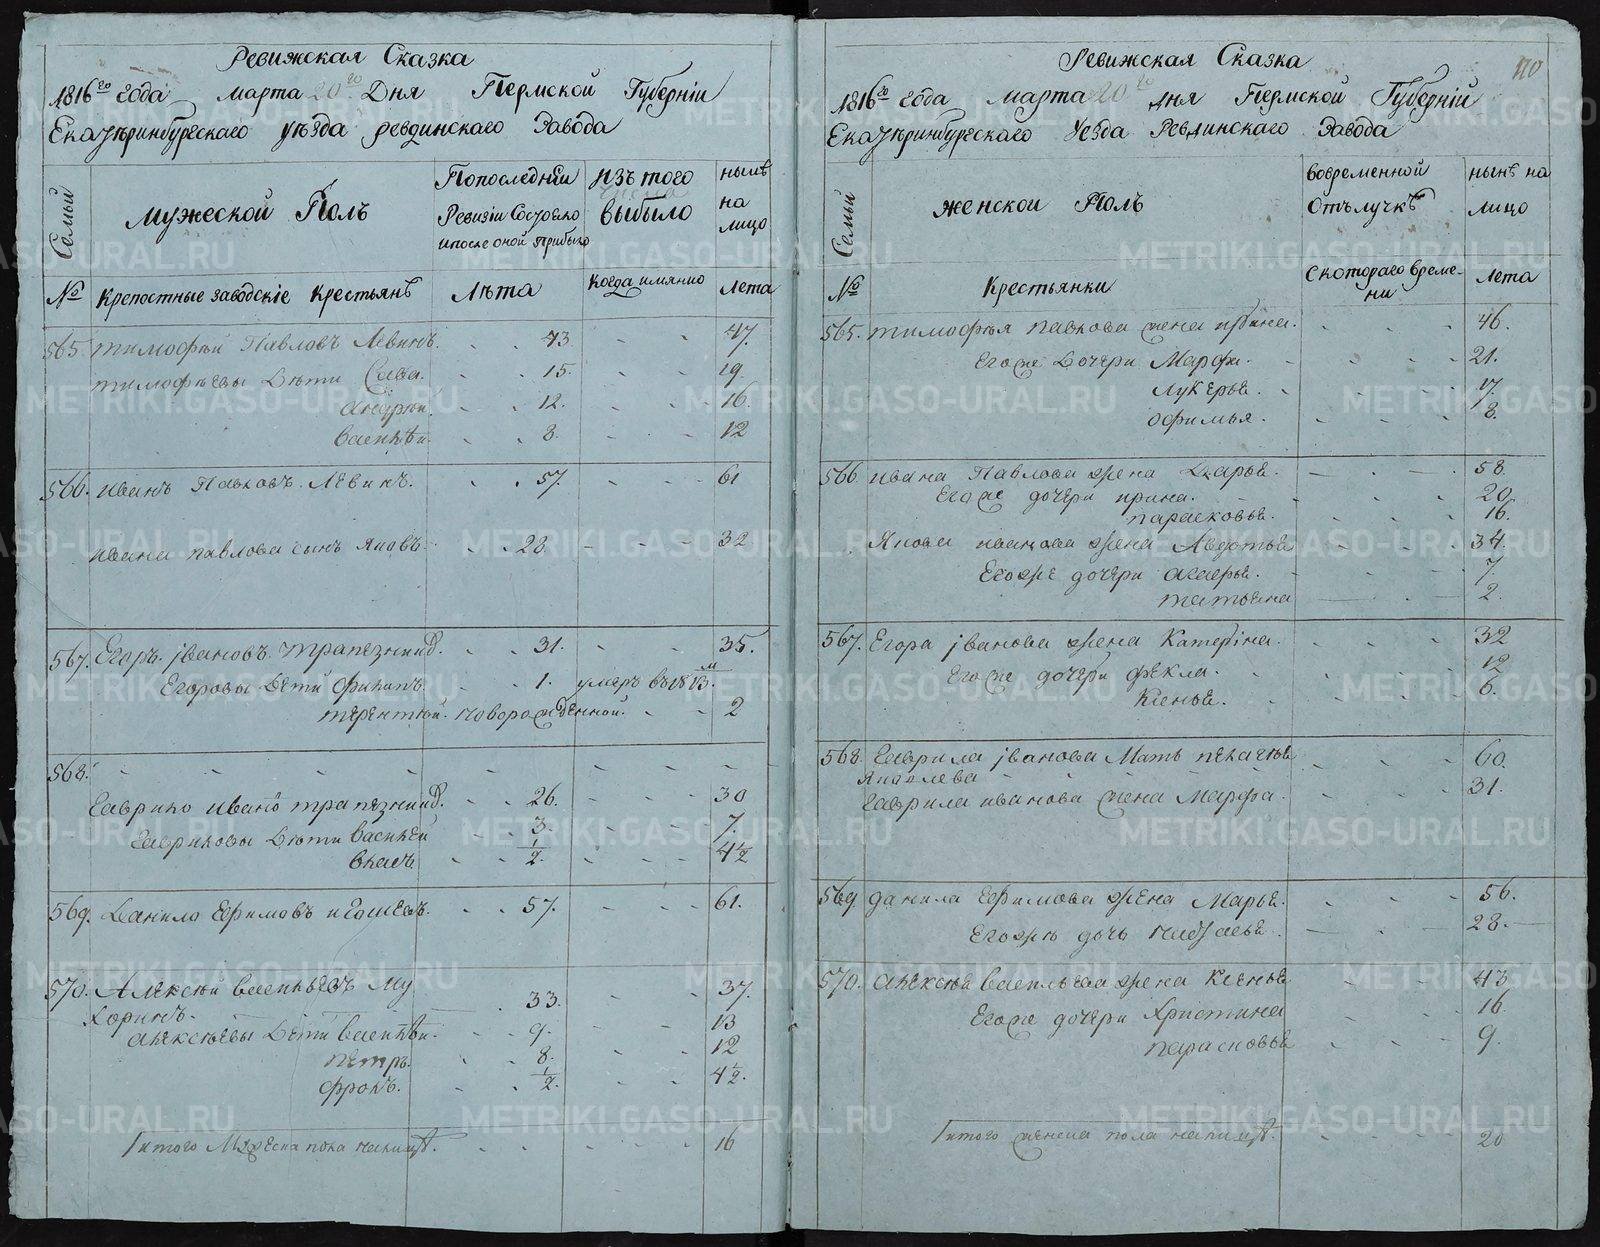 Ревижская Сказка
1816го года марта 20го Дня Пермской Губернiи
Екатѣринбургскаго уѣзда ревдинскаго Завода
Семьи
мужеской Полъ
Попоследнѣи Ревизiи Состояло ипосле оной прибыло
Изъ того выбыло
нынѣ на лицо
№ Крепостные заводскiе крестьянѣ Лѣта Когда имянно Лета
565. тимофѣй Павловъ Левинъ. 43. 47.
тимофѣевы дѣти Сава. 15. 19
андрѣй. 12. 16.
василѣи. 8. 12
566. иванъ Павловъ Левинъ. 57. 61
ивана павлова сынъ яковъ. 28. 32
567. Егоръ iвановъ трапезник 31. 35.
Егоровы дѣти филипъ. 1. умеръ въ 1813м
терентѣй новорожденной. 2
568.
Гаврило ивано трапезник 26. 30
Гавриловы дѣти василѣй 3. 7.
власъ 1/2. 4 1/2
569. Данило Ефимовъ 57. 61.
570. Алексѣй васильевъ Му
хоринъ. 33. 37.
алексѣевы дѣти василѣи. 9. 13
пётръ. 8. 12
фролъ. 1/2. 4 1/2.
итого Мужеска пола налицо. 16
110
Ревижская Сказка
1816го года марта 20го дня Пермской Губернiй
Екатѣринбургскаго уезда Ревдинскаго Завода
Семьи
женской Полъ
вовременной отълучкѣ
нынѣ на лицо
№ Крестьянки Скотораго време-ни лета
565. тимофѣя павлова жена ирина. 46.
Егоже дочери Марфа. 21.
лукерья. 17.
офимья. 8.
566 ивана Павлова жена дарья. 58
Егоже дочери ирина. 20.
парасковья. 16.
Якова иванова жена Авдотья 34.
Егоже дочери 7.
татьяна 2.
567. Егора iванова жена Катерiна. 32
Егоже дочери фекла. 12
Ксенья. 6.
568. Гаврила iванова Мать пелагея 60.
Яковлева
Гаврила иванова жена Марфа. 31.
569 данила Ефимова жена Марья. 56.
Егожѣ дочь 28.
570. алексѣя васильева жена Ксенья 43
Егоже дочери христина 16.
парасковья 9.
итого женска пола налицо. 20
METRIKI.GASO-URAL.RU